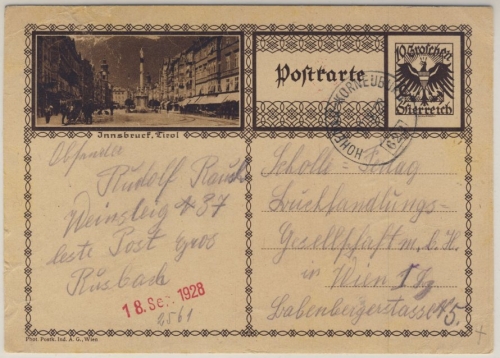 Postkarte
10 Groschen
Österreich
Innsbruck, Tirol
KORNEUBURG
Absender
Rudolf Rauch
Weinsteig № 37
letste Post Gros
Rusbach
18. Sep. 1928
2561
Scholle Verlag
Buchhandlungs-
Gesellschaft m. b. H.
in Wien I
Babenbergerstasse № 5.
Phot. Postk. Ind. A. G., Wien